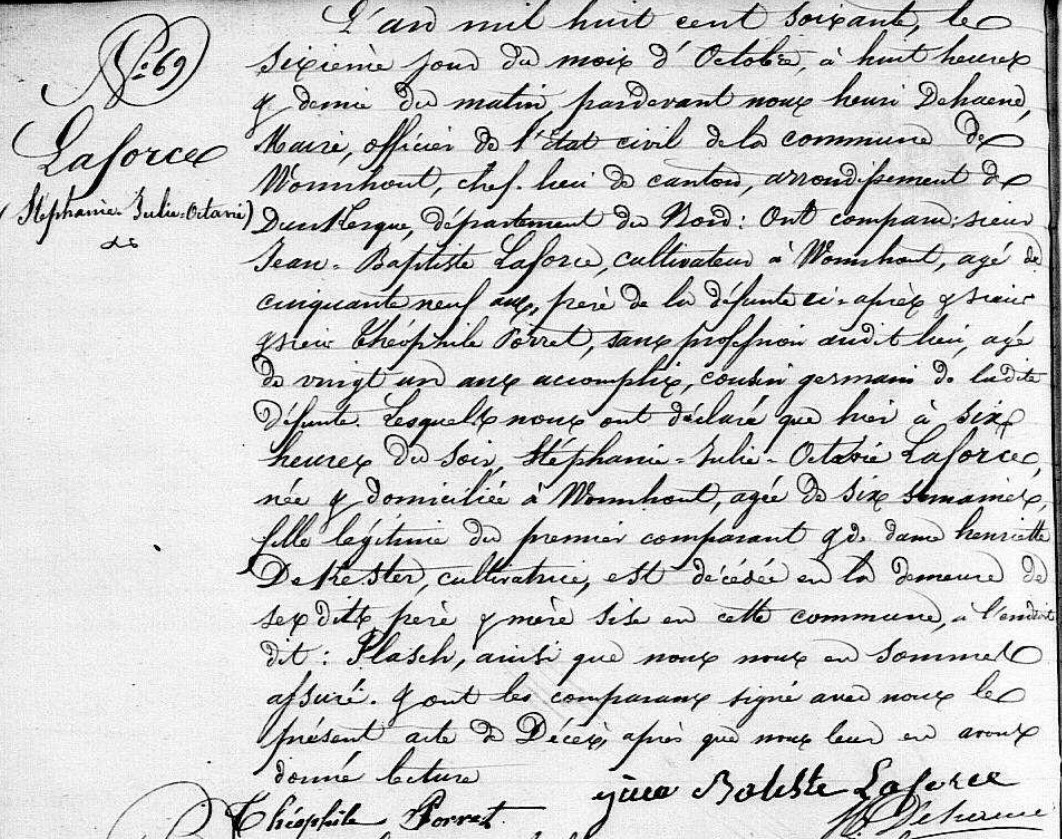 N.º 69
Laforce
(Stéphanie-Julie-Octavie)
L'an mil huit cent soixante, le
sixième jour du mois d'Octobre, à huit heures
& demie du matin, pardevant nous henri Dehaene,
Maire, officier de l'État civil de la commune de
Wormhout, chef-lieu de canton, arrondissement de
Dunkerque, département du Nord: Ont comparu: sieur
Jean-Baptiste Laforce, cultivateur à Wormhout, agé de
cinquante neuf ans, père de la défunte ci-après & sieur
& sieur Théophile Porret, sans profession audit lieu, agé
de vingt un ans accomplis, cousin germain de ladite
défunte. Lesquels nous ont déclaré que hier à six
heures du soir, Stéphanie-Julie-Octavie Laforce,
née & domiciliée à Wormhout, agée de six semaines,
fille légitime du premier comparant & de dame henriette
DeKester, cultivatrice, est décédée en la demeure de
ses dits père & mère sise en cette commune, à l'endroit
dit: Plasch, ainsi que nous nous en sommes
assuré. & ont les comparans signé avec nous le
présent acte de Décès, après que nous leur en avons
donné lecture
Théophile Porret
Batiste Laforce
Dehaene